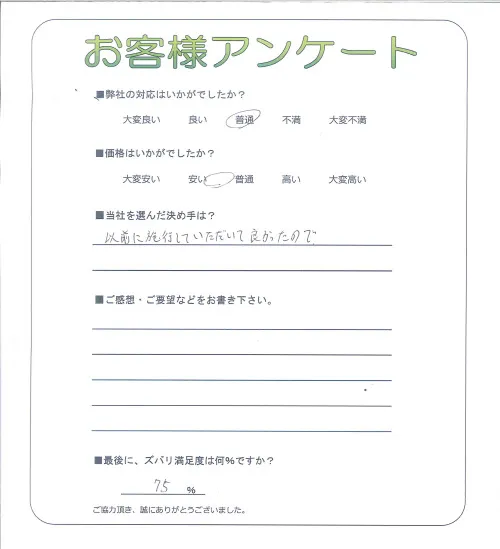 お客様アンケート
■弊社の対応はいかがでしたか？
大変良い 良い 普通 不満 大変不満
■価格はいかがでしたか？
大変安い 安い 普通 高い 大変高い
■当社を選んだ決め手は？
以前に施行していただいて良かったので
■ご感想・ご要望などをお書き下さい。
■最後に、ズバリ満足度は何％ですか？
75 %
ご協力頂き、誠にありがとうございました。